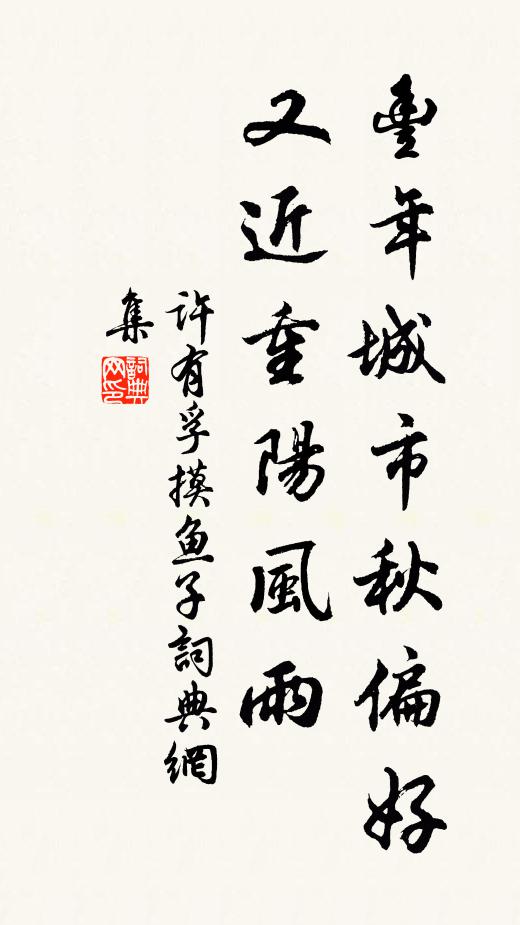 豐年城市秋偏好
又近重陽風雨
許有孚摸鱼子詞典網
集
詞典网印